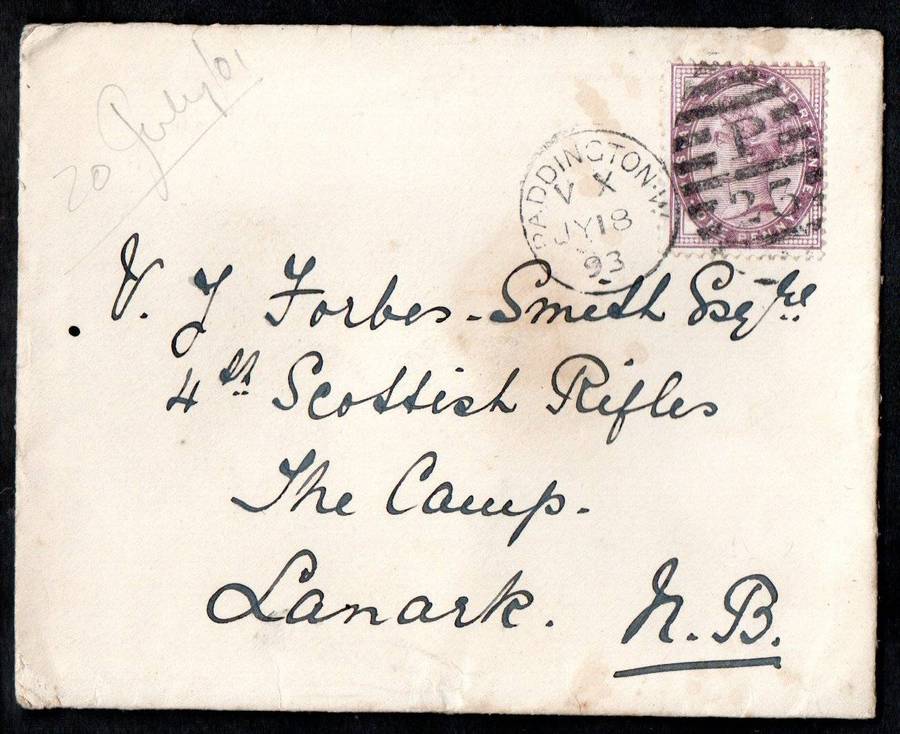 20 July/01
PADDINGTON.W.
V X
JY 18
93
P
25
V. J Forbes-Smith Esqre
4th Scottish Rifles
The Camp.
Lanark.
N.B.